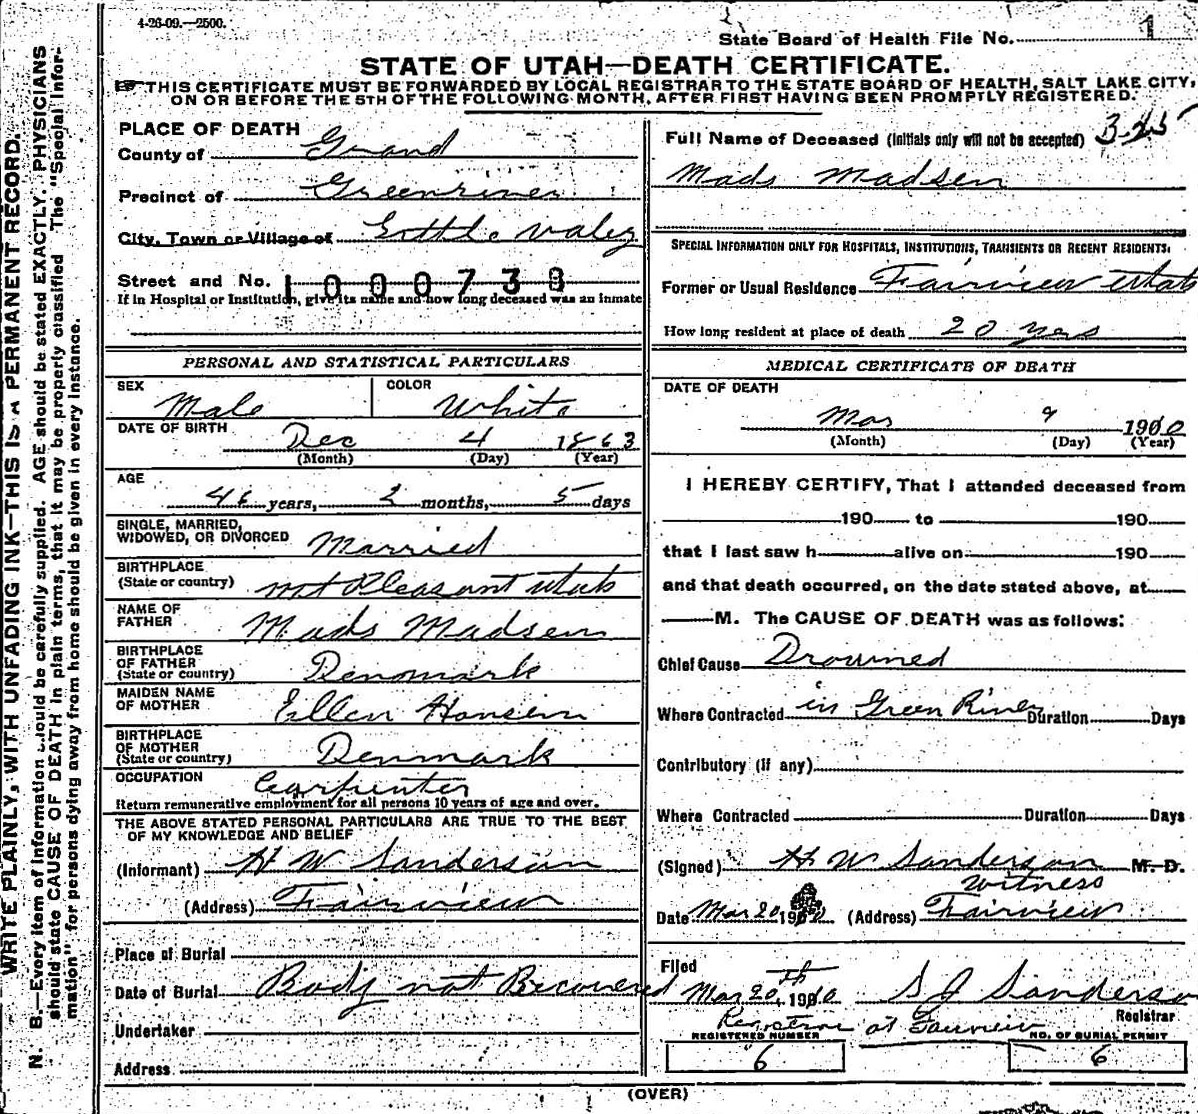 4-26-09.—2500.
State Board of Health File No. 1
STATE OF UTAH—DEATH CERTIFICATE.
THIS CERTIFICATE MUST BE FORWARDED BY LOCAL REGISTRAR TO THE STATE BOARD OF HEALTH, SALT LAKE CITY,
ON OR BEFORE THE 5TH OF THE FOLLOWING MONTH, AFTER FIRST HAVING BEEN PROMPTLY REGISTERED.
WRITE PLAINLY, WITH UNFADING INK—THIS IS A PERMANENT RECORD.
N. B.—Every item of information should be carefully supplied. AGE should be stated EXACTLY. PHYSICIANS
should state CAUSE OF DEATH in plain terms, that it may be properly classified. The "Special Infor-
mation" for persons dying away from home should be given in every instance.
PLACE OF DEATH
County of Grand
Precinct of Greenriver
City, Town or Village of Valey
Street and No. 1000738
If in Hospital or Institution, give its name and how long deceased was an inmate
PERSONAL AND STATISTICAL PARTICULARS
SEX Male
COLOR White
DATE OF BIRTH Dec 4 1863
(Month) (Day) (Year)
AGE
46 years, 2 months, 5 days
SINGLE, MARRIED,
WIDOWED, OR DIVORCED Married
BIRTHPLACE
(State or country) mt Pleasant Utah
NAME OF
FATHER Mads Madsen
BIRTHPLACE
OF FATHER
(State or country) Denmark
MAIDEN NAME
OF MOTHER Ellen Hansen
BIRTHPLACE
OF MOTHER
(State or country) Denmark
OCCUPATION Carpenter
Return remunerative employment for all persons 10 years of age and over.
THE ABOVE STATED PERSONAL PARTICULARS ARE TRUE TO THE BEST
OF MY KNOWLEDGE AND BELIEF
(Informant) H W Sanderson
(Address) Fairview
Place of Burial
Date of Burial Body not Recovered
Undertaker
Address
Full Name of Deceased (Initials only will not be accepted) 3-25
Mads Madsen
SPECIAL INFORMATION ONLY FOR HOSPITALS, INSTITUTIONS, TRANSIENTS OR RECENT RESIDENTS.
Former or Usual Residence Fairview Utah
How long resident at place of death 20 yrs
MEDICAL CERTIFICATE OF DEATH
DATE OF DEATH
Mar 9 1910
(Month) (Day) (Year)
I HEREBY CERTIFY, That I attended deceased from
190 to 190
that I last saw h alive on 190
and that death occurred, on the date stated above, at
M. The CAUSE OF DEATH was as follows:
Chief Cause Drowned
Where Contracted in Green River Duration Days
Contributory (if any)
Where Contracted Duration Days
(Signed) H W Sanderson M. D.
Witness
Date Mar 20 1910 (Address) Fairview
Filed
Mar 20th, 1910 S J Sanderson
Registrar
Registrar at Fairview
REGISTERED NUMBER
6
NO. OF BURIAL PERMIT
6
(OVER)